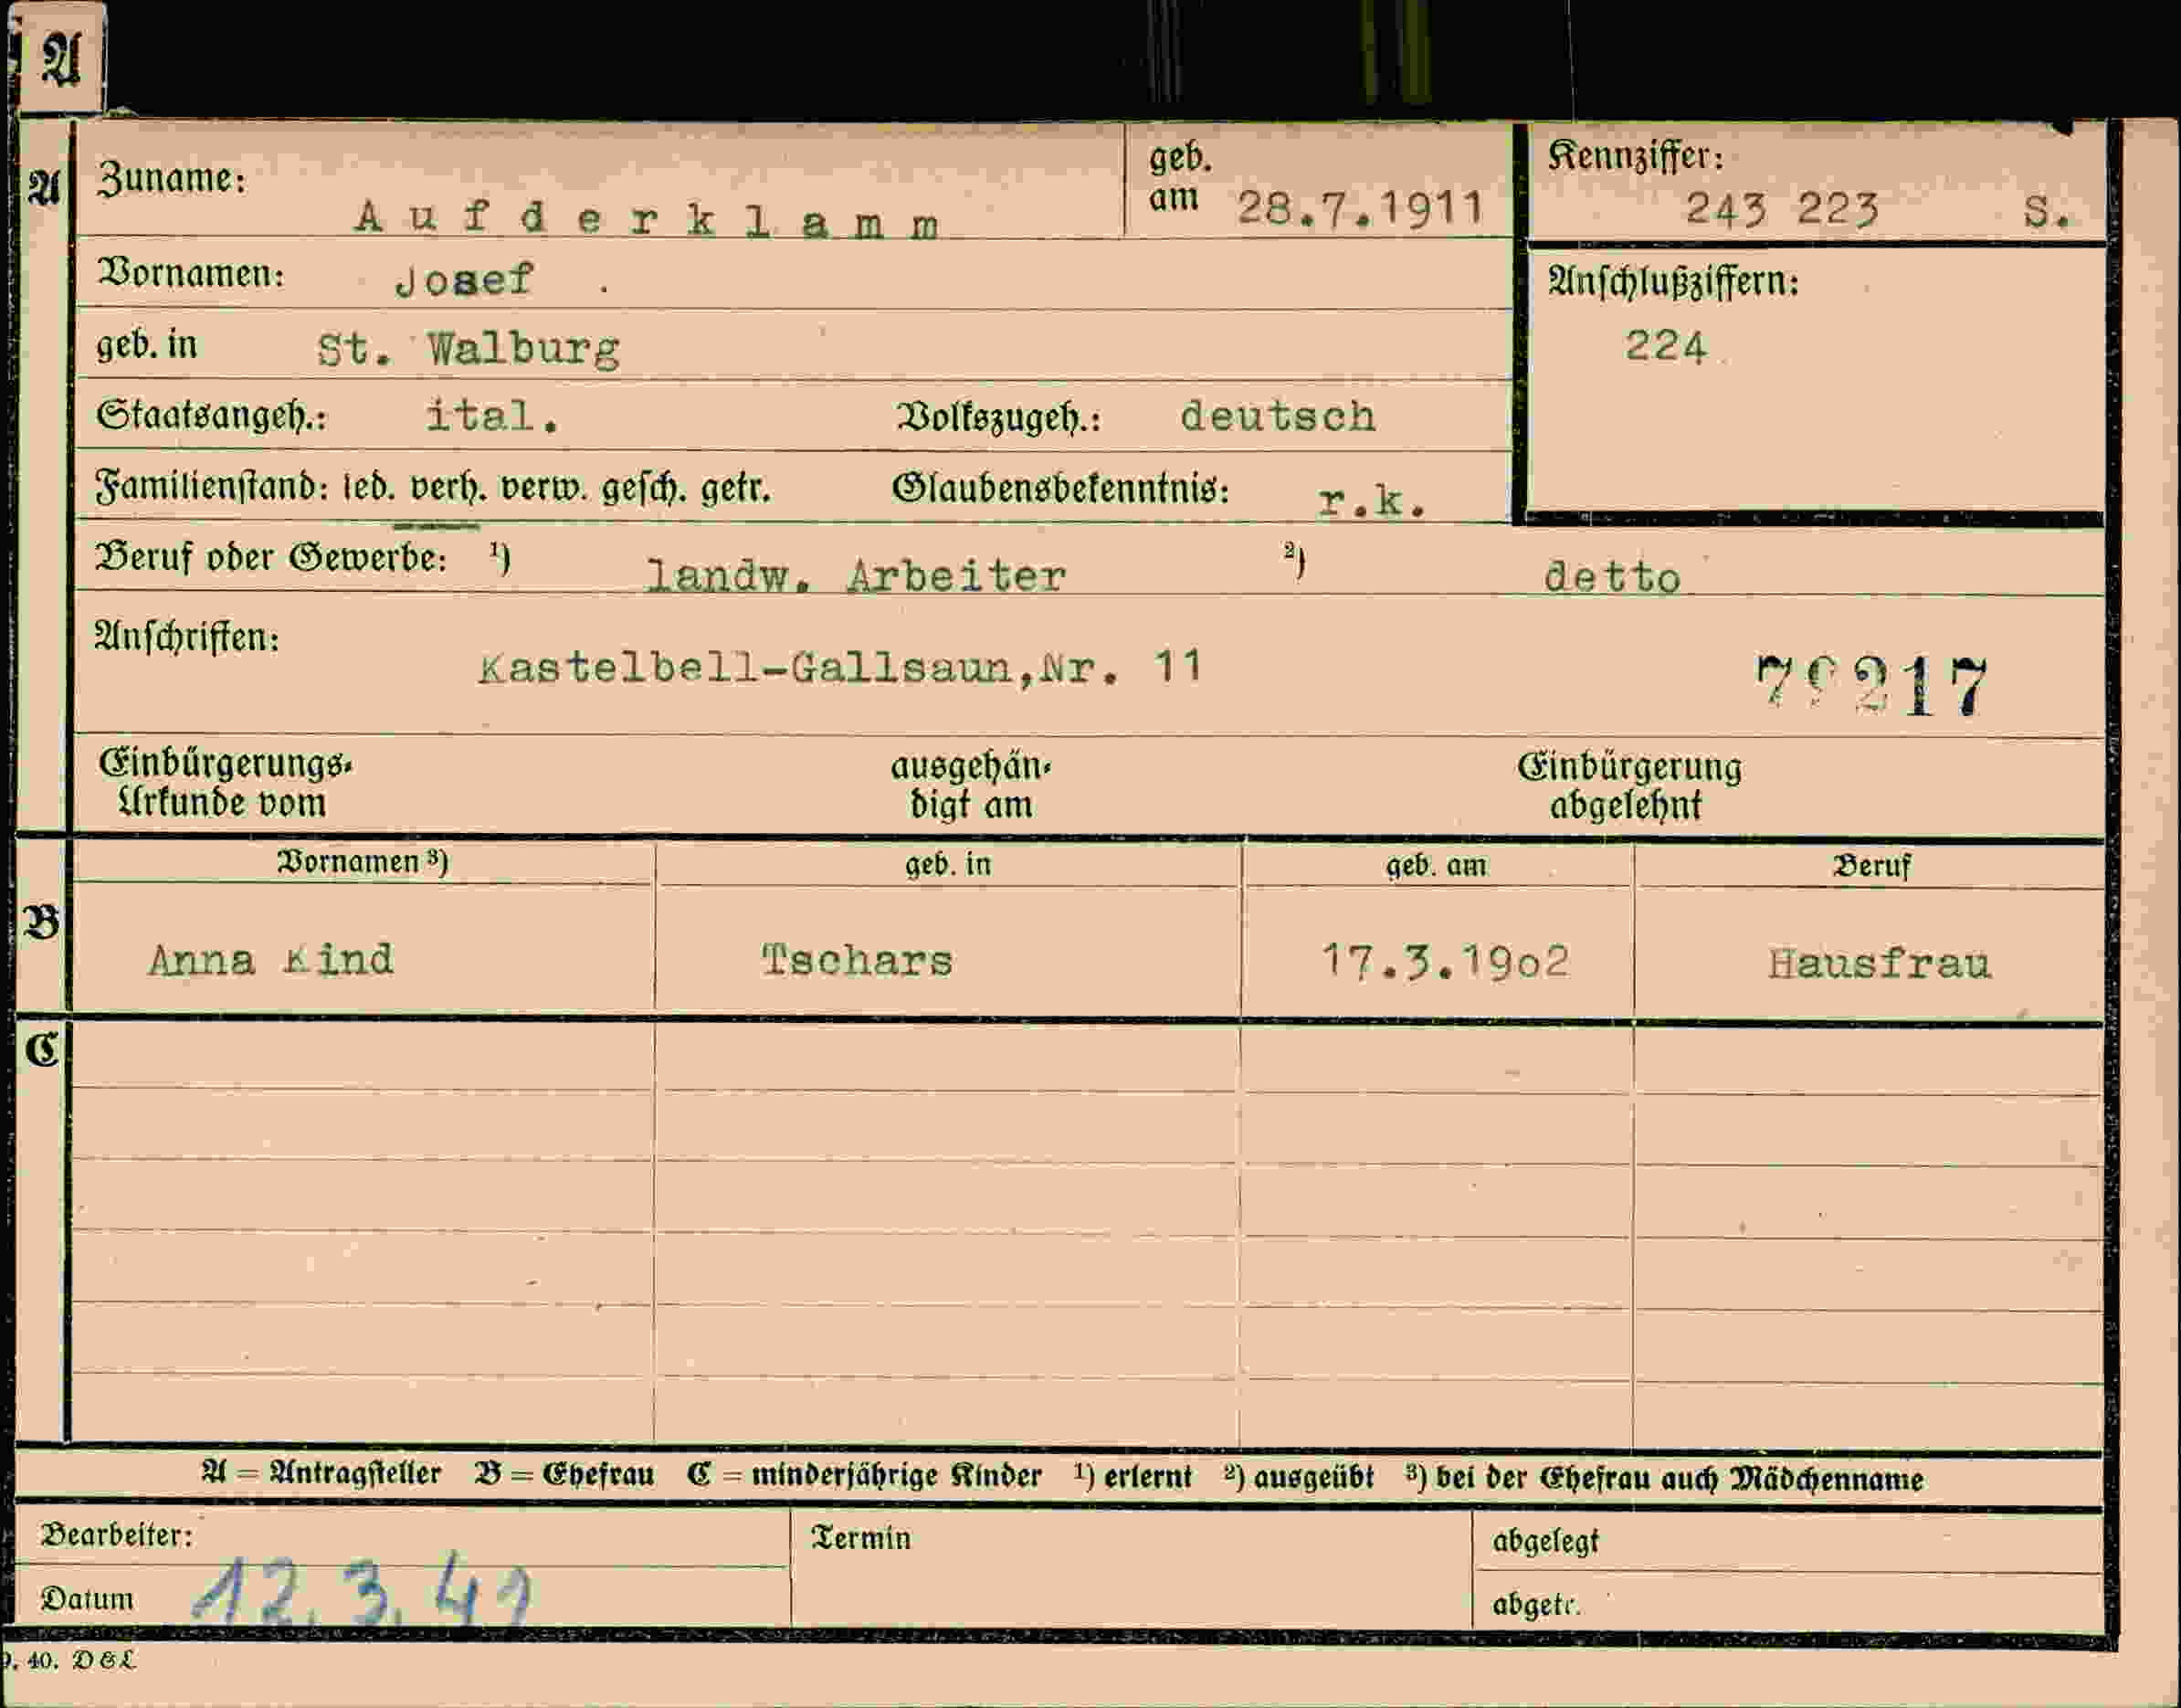 A
A Zuname: Aufderklamm geb. am 28.7.1911 Kennziffer: 243 223 S.
Vornamen: Josef .
Anschlußziffern:
geb. in St. Walburg 224
Staatsangeh.: ital. Volkszugeh.: deutsch
Familienstand: led. verh. verw. gesch. getr. Glaubensbekenntnis: r.k.
Beruf oder Gewerbe: ¹) landw. Arbeiter ²) detto
Anschriften:
Kastelbell-Gallsaun,Nr. 11
Einbürgerungs- ausgehän- Einbürgerung
Urkunde vom digt am abgelehnt
Vornamen ³) geb. in geb. am Beruf
B
Anna Kind Tschars 17.3.19o2 Hausfrau
C
A = Antragsteller B = Ehefrau C = minderjährige Kinder ¹) erlernt ²) ausgeübt ³) bei der Ehefrau auch Mädchenname
Bearbeiter: Termin abgelegt
Datum 12.3.41 abgetr.
40. D&L